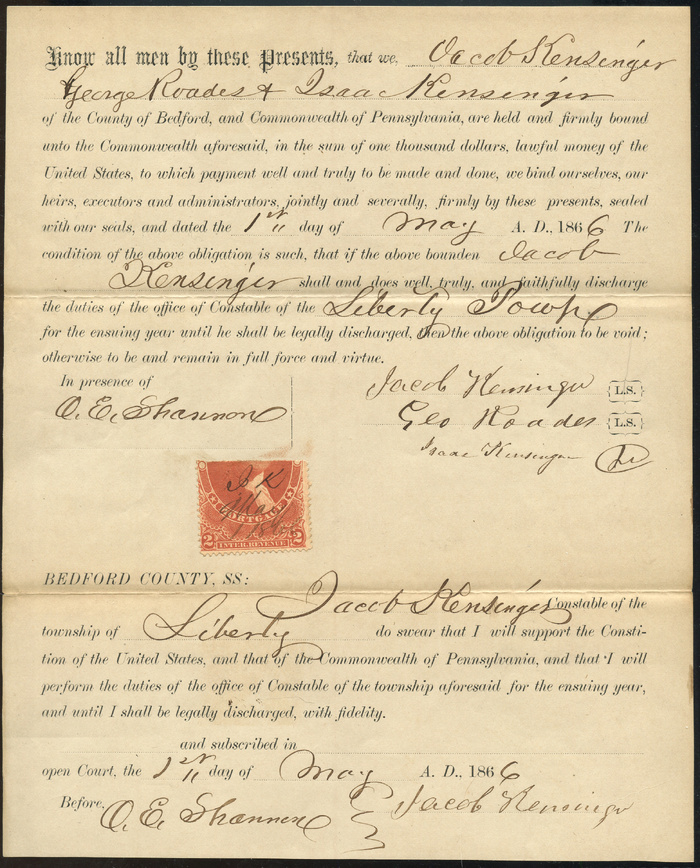 Know all men by these Presents, that we, Jacob Kensinger
George Roades & Isaac Kensinger
of the County of Bedford, and Commonwealth of Pennsylvania, are held and firmly bound
unto the Commonwealth aforesaid, in the sum of one thousand dollars, lawful money of the
United States, to which payment well and truly to be made and done, we bind ourselves, our
heirs, executors and administrators, jointly and severally, firmly by these presents, sealed
with our seals, and dated the 1st day of May A. D., 1866 The
condition of the above obligation is such, that if the above bounden Jacob
Kensinger shall and does well, truly, and faithfully discharge
the duties of the office of Constable of the Liberty Townp
for the ensuing year until he shall be legally discharged, then the above obligation to be void;
otherwise to be and remain in full force and virtue.
In presence of
O. E. Shannon
Jacob Kensinger {L.S.}
Geo Roades {L.S.}
Isaac Kensinger
J K
May
MORTGAGE
2 INTER. REVENUE 2
BEDFORD COUNTY, SS:
Jacob Kensinger Constable of the
township of Liberty do swear that I will support the Consti-
tion of the United States, and that of the Commonwealth of Pennsylvania, and that I will
perform the duties of the office of Constable of the township aforesaid for the ensuing year,
and until I shall be legally discharged, with fidelity.
and subscribed in
open Court, the 1st day of May A. D., 1866
Before, O. E. Shannon Jacob Kensinger